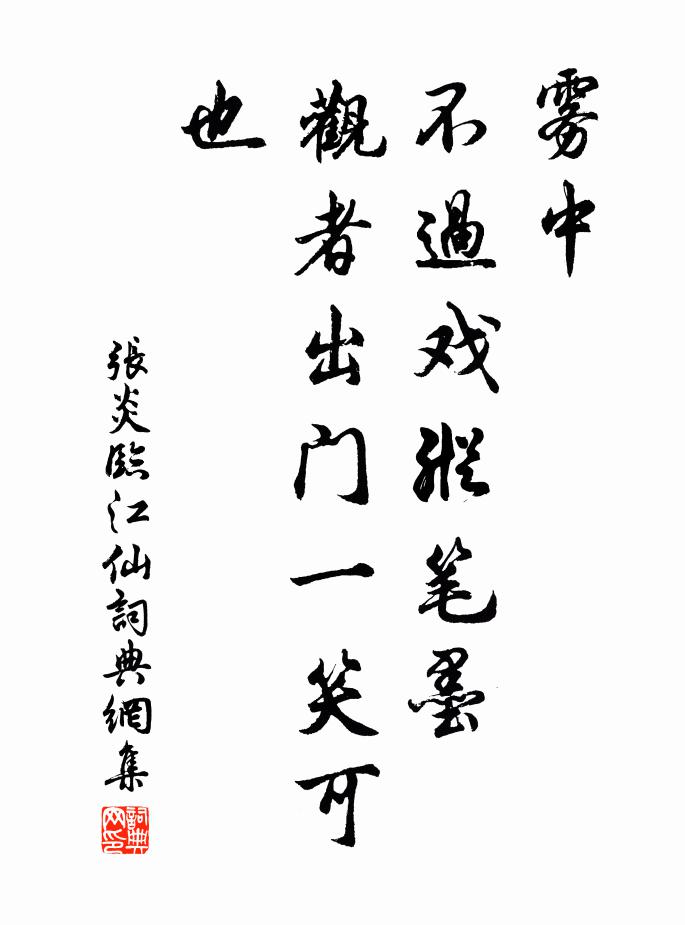 雾中
不過戏縱笔墨
觀者出门一笑可
也
張炎臨江仙詞典網集
詞典网印